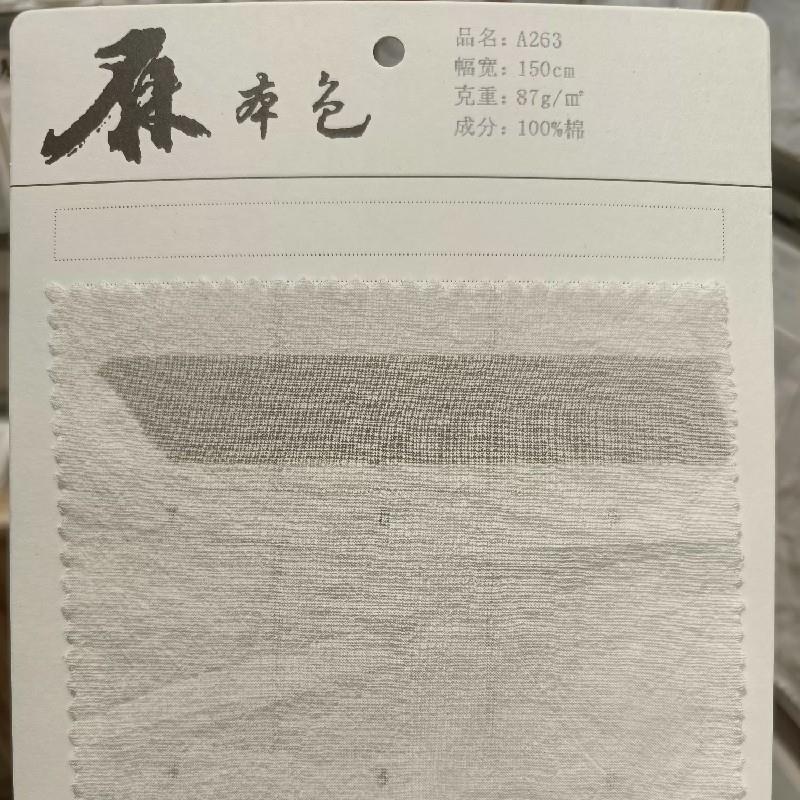 麻本色
品名: A263
幅宽: 150cm
克重: 87g/㎡
成分: 100%棉